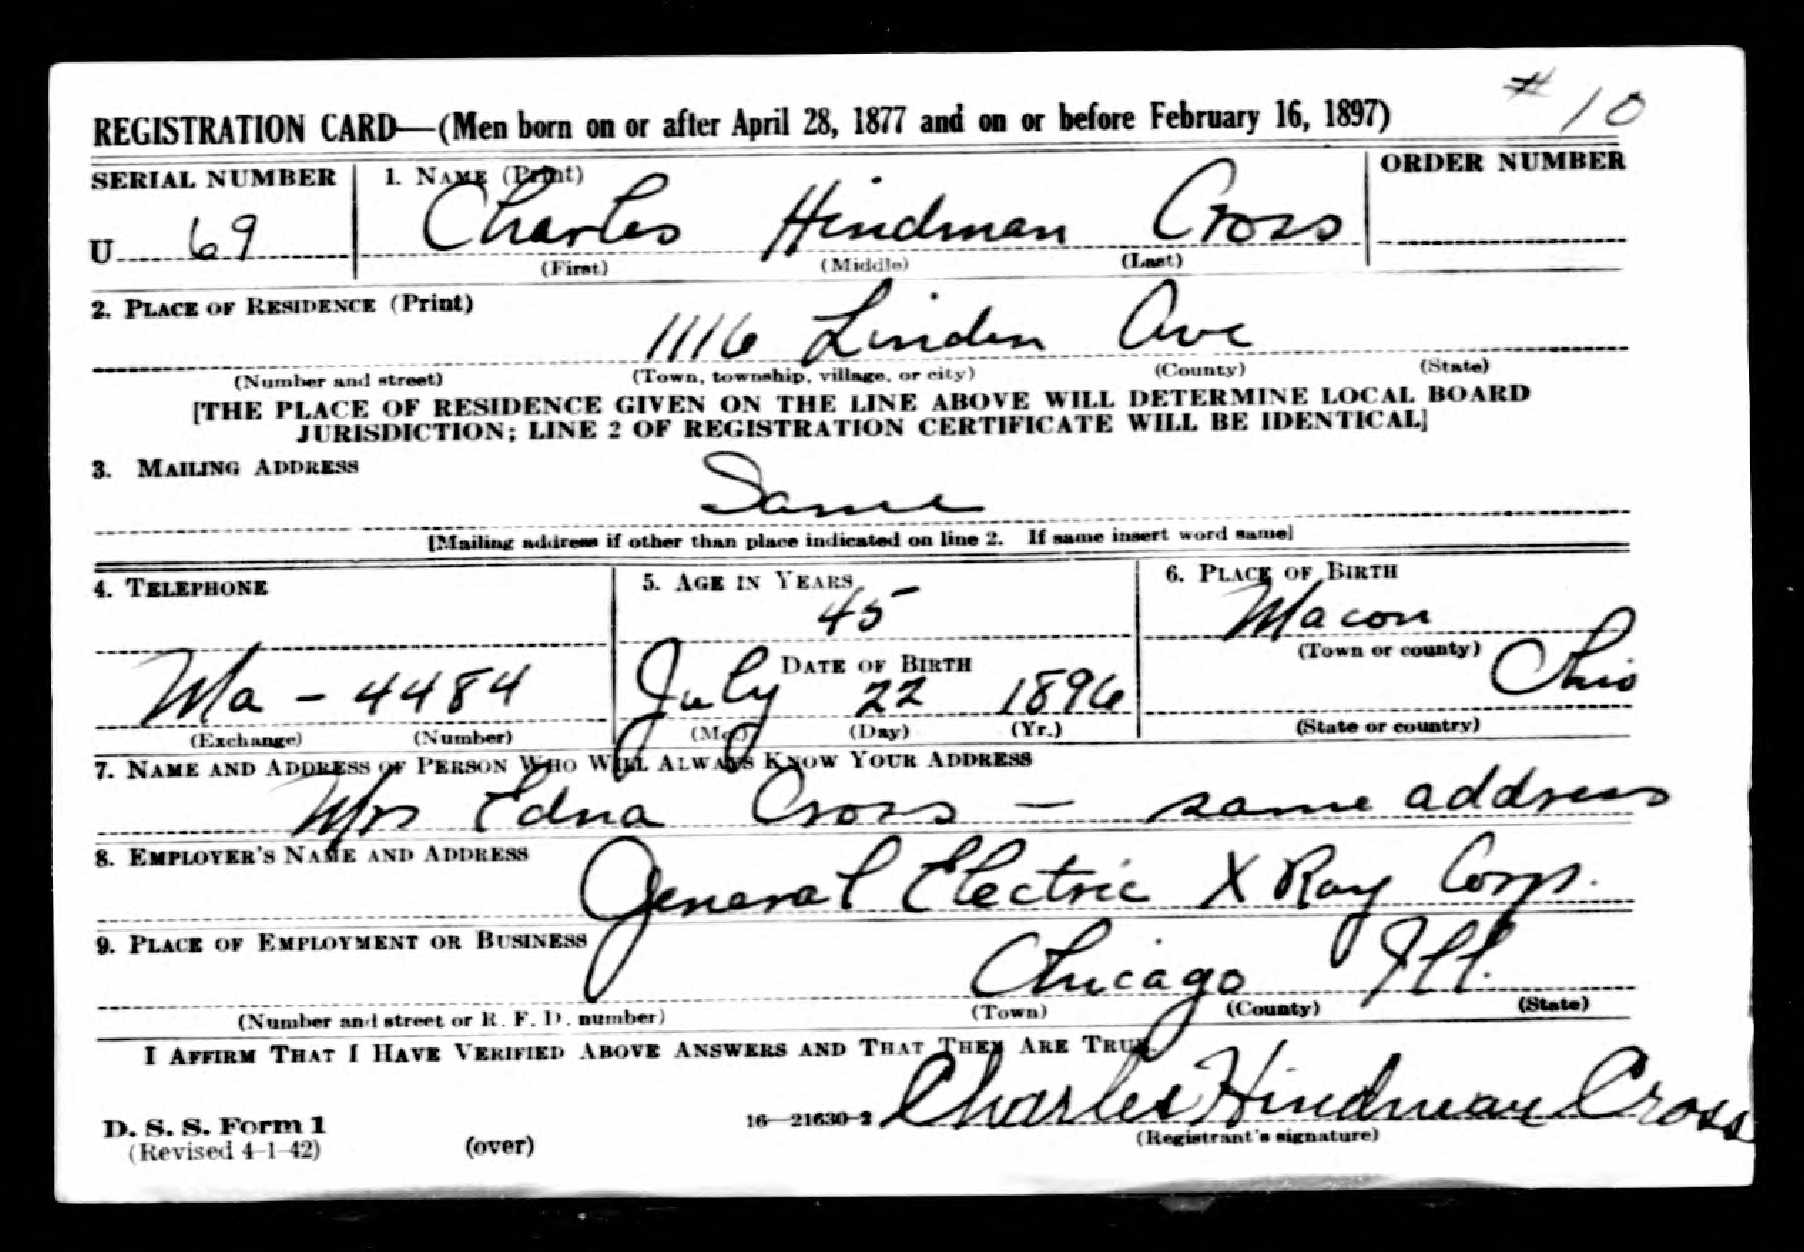 # 10
REGISTRATION CARD—(Men born on or after April 28, 1877 and on or before February 16, 1897)
SERIAL NUMBER 1. NAME (Print) ORDER NUMBER
U 69 Charles Hindman Cross
(First) (Middle) (Last)
2. PLACE OF RESIDENCE (Print)
1116 Linden Ave
(Number and street) (Town, township, village, or city) (County) (State)
[THE PLACE OF RESIDENCE GIVEN ON THE LINE ABOVE WILL DETERMINE LOCAL BOARD
JURISDICTION; LINE 2 OF REGISTRATION CERTIFICATE WILL BE IDENTICAL]
3. MAILING ADDRESS
Same
[Mailing address if other than place indicated on line 2. If same insert word same]
4. TELEPHONE 5. AGE IN YEARS 6. PLACE OF BIRTH
45 Macon
DATE OF BIRTH (Town or county)
Ma - 4484 July 22 1896 Ohio
(Exchange) (Number) (Mo.) (Day) (Yr.) (State or country)
7. NAME AND ADDRESS OF PERSON WHO WILL ALWAYS KNOW YOUR ADDRESS
Mrs Edna Cross — same address
8. EMPLOYER'S NAME AND ADDRESS
General Electric X Ray Corp.
9. PLACE OF EMPLOYMENT OR BUSINESS
Chicago Ill.
(Number and street or R. F. D. number) (Town) (County) (State)
I AFFIRM THAT I HAVE VERIFIED ABOVE ANSWERS AND THAT THEY ARE TRUE.
Charles Hindman Cross
D. S. S. Form 1 16—21630-2
(Revised 4-1-42) (over) (Registrant's signature)